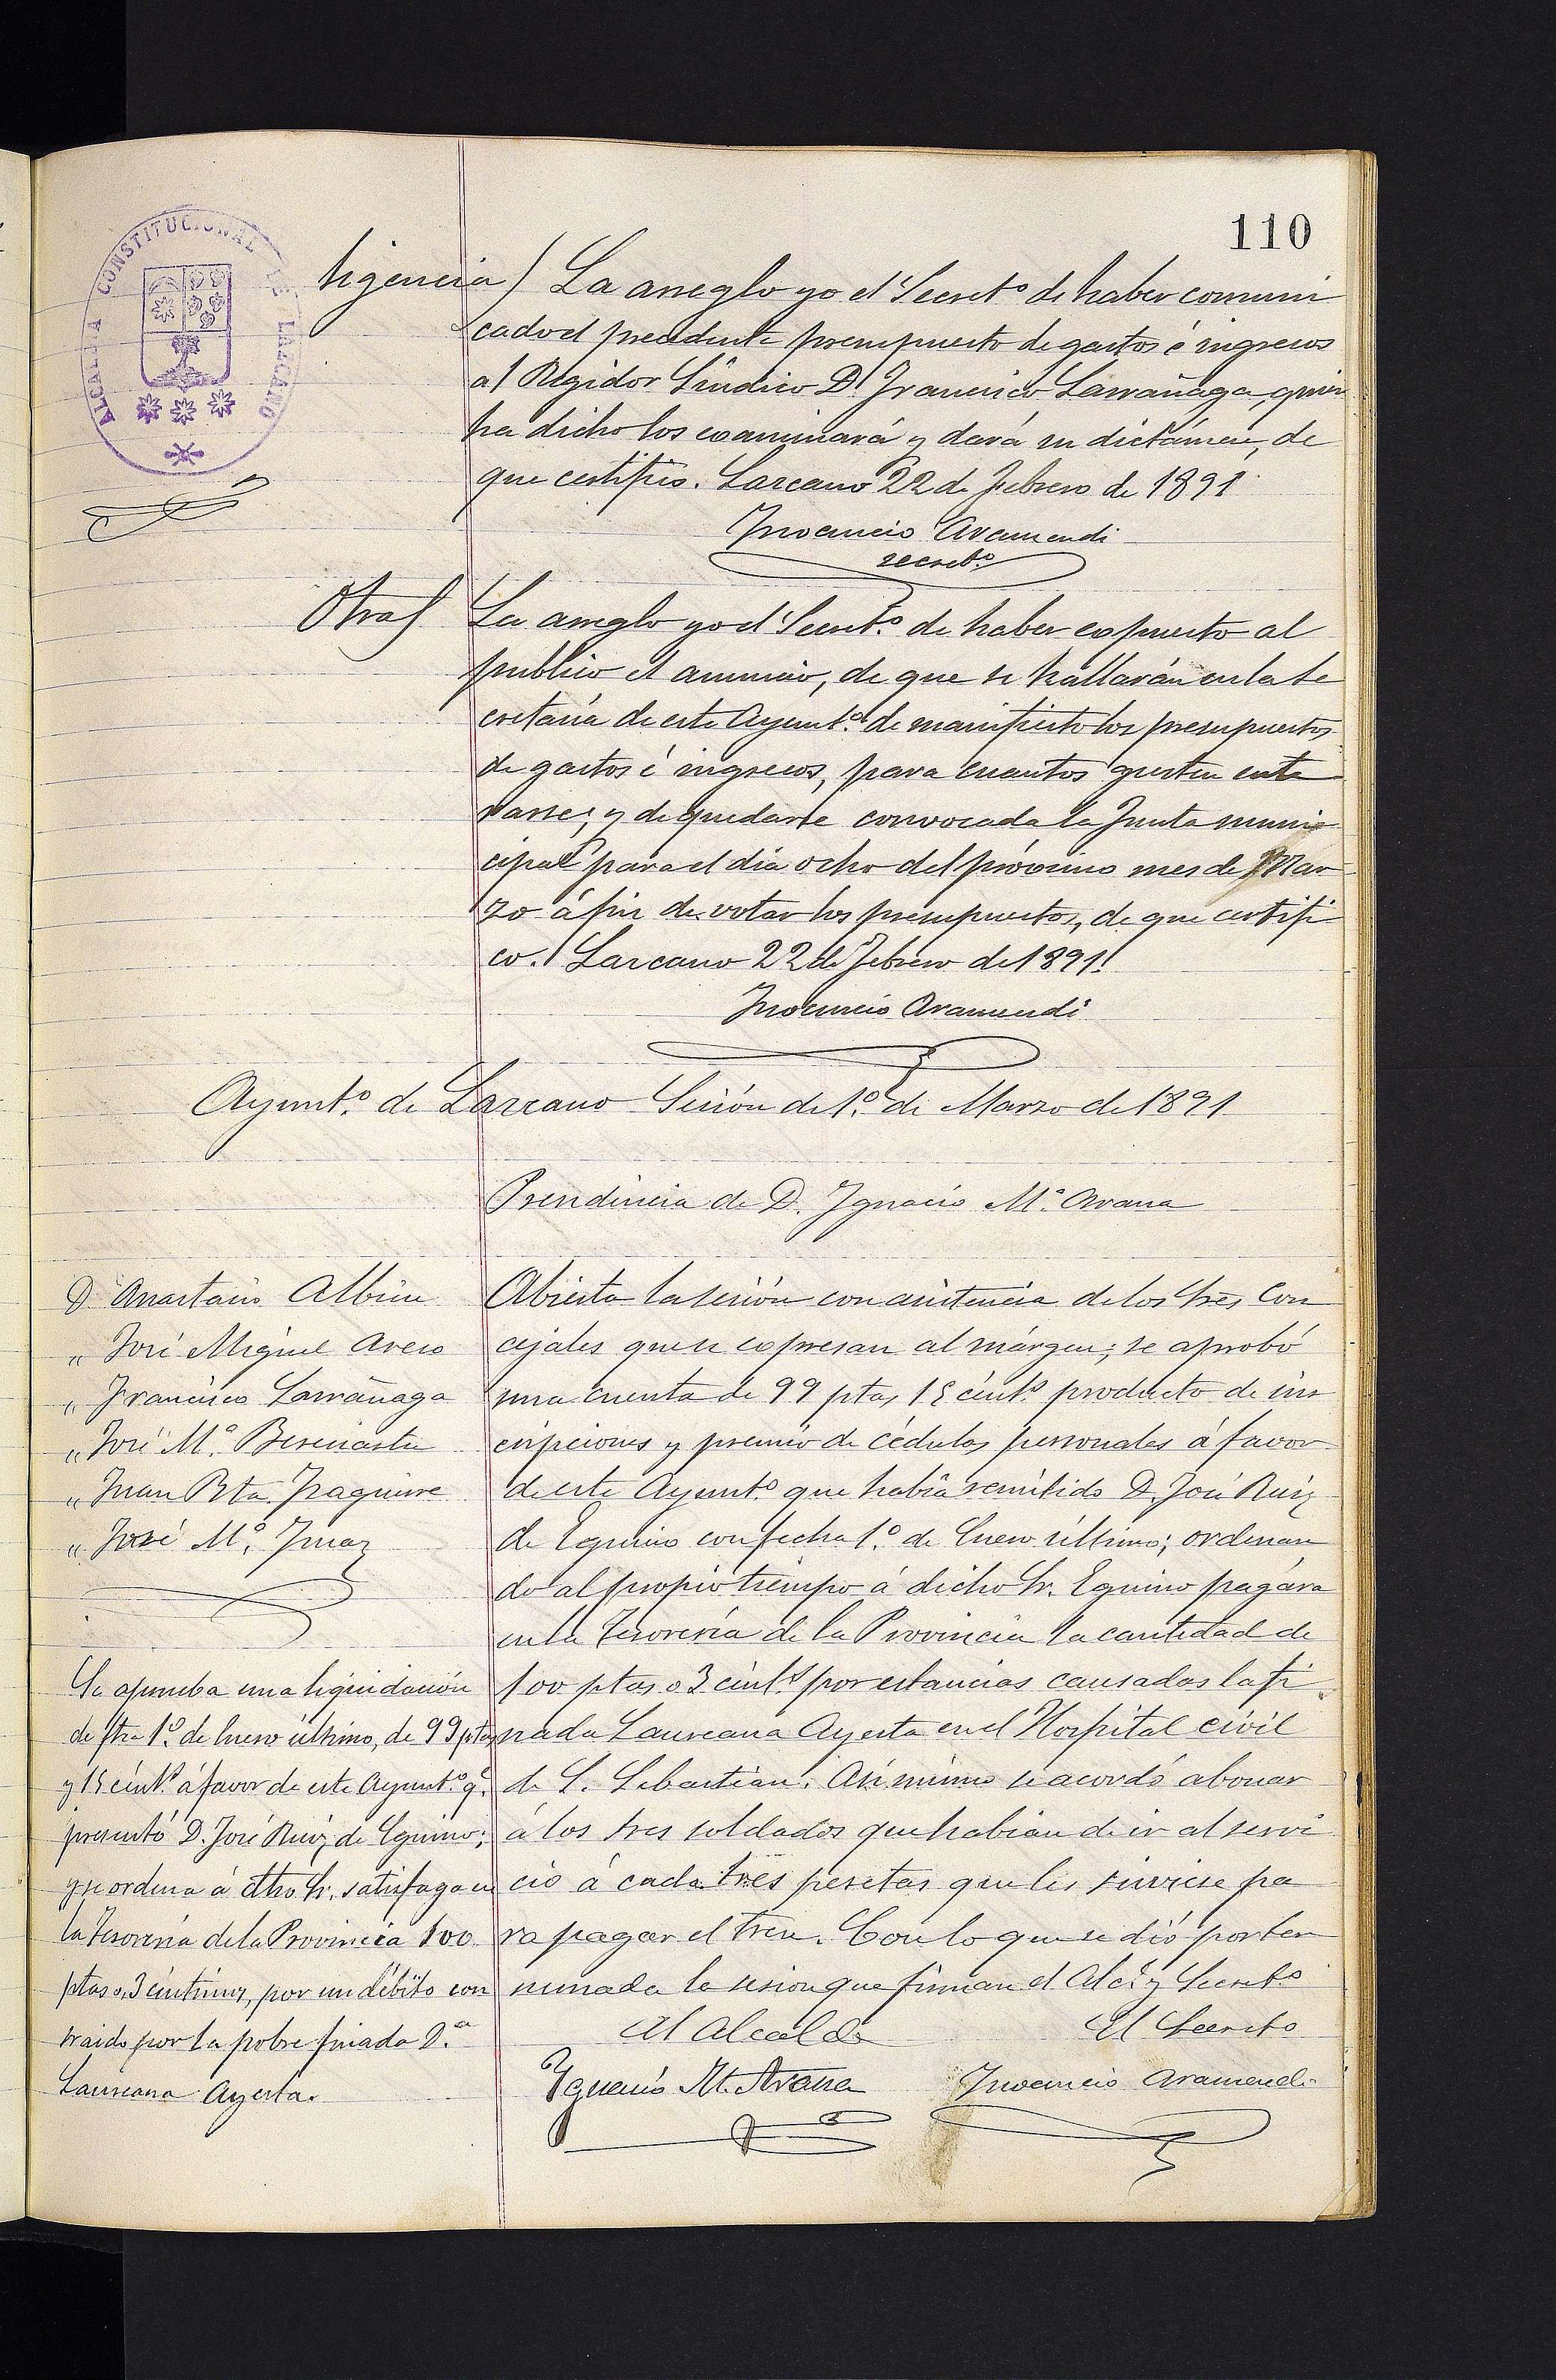 110
ALCALDIA CONSTITUCIONAL DE LAZCANO
ligencia) La arreglo yo el Secretº de haber comuni
cado el precedente presupuesto de gastos é ingresos
al Regidor Síndico D. Francisco Larrañaga, quien
ha dicho los examinará y dará su dictámen, de
que certifico. Lazcano 22 de Febrero de 1891
Inocencio Aramendi
secretº
Otra) La arreglo yo el Secretº de haber expuesto al
publico el anuncio, de que se hallarán en la Se
cretaría de este Ayuntº de manifiesto los presupuestos
de gastos é ingresos, para cuantos gusten ente
rarse; y de quedarse convocada la Junta muni
cipal para el día ocho del próximo mes de Mar
zo á fin de votar los presupuestos, de que certifi
co. Lazcano 22 de Febrero de 1891.
Inocencio Aramendi
Ayuntº de Lazcano Sesión de 1º de Marzo de 1891
Presidencia de D. Ignacio Mª Arana
D. Anastasio Albisu
" José Miguel Areso
" Francisco Larrañaga
" José Mª Berasiartu
" Juan Bta. Izaguirre
" José Mª Imaz
Abierta la sesión con asistencia de los Sres Con
cejales que se expresan al márgen; se aprobó
una cuenta de 99 ptas 15 céntº producto de ins
cripciones y premio de cédulas personales á favor
de este Ayuntº que había remitido D. José Ruiz
de Eguino con fecha 1º de Enero último; ordenan
do al propio tiempo á dicho Sr. Eguino pagára
en la Tesorería de la Provincia la cantidad de
100 ptas 03 cént. por estancias causadas la fi
nada Laureana Ayerta en el Hospital civil
de S. Sebastian. Asi mismo se acordó abonar
á los tres soldados que habían de ir al servi
cio á cada tres pesetas que les sirviese pa
ra pagar el tren. Con lo que se dió por ter
minada la sesion que firman el Alc. y Secretº
Se aprueba una liquidación
de fha 1º de Enero último, de 99 ptas
y 15 céntº á favor de este Ayuntº q.
presentó D. José Ruiz de Eguino;
y se ordena á dho Sr. satisfaga en
la Tesorería de la Provincia 100
ptas 03 céntimos, por un débito con
traido por la pobre finada D.ª
Laureana Ayerta.
El Alcalde El Secretº
Ignacio M. Arana Inocencio Aramendi